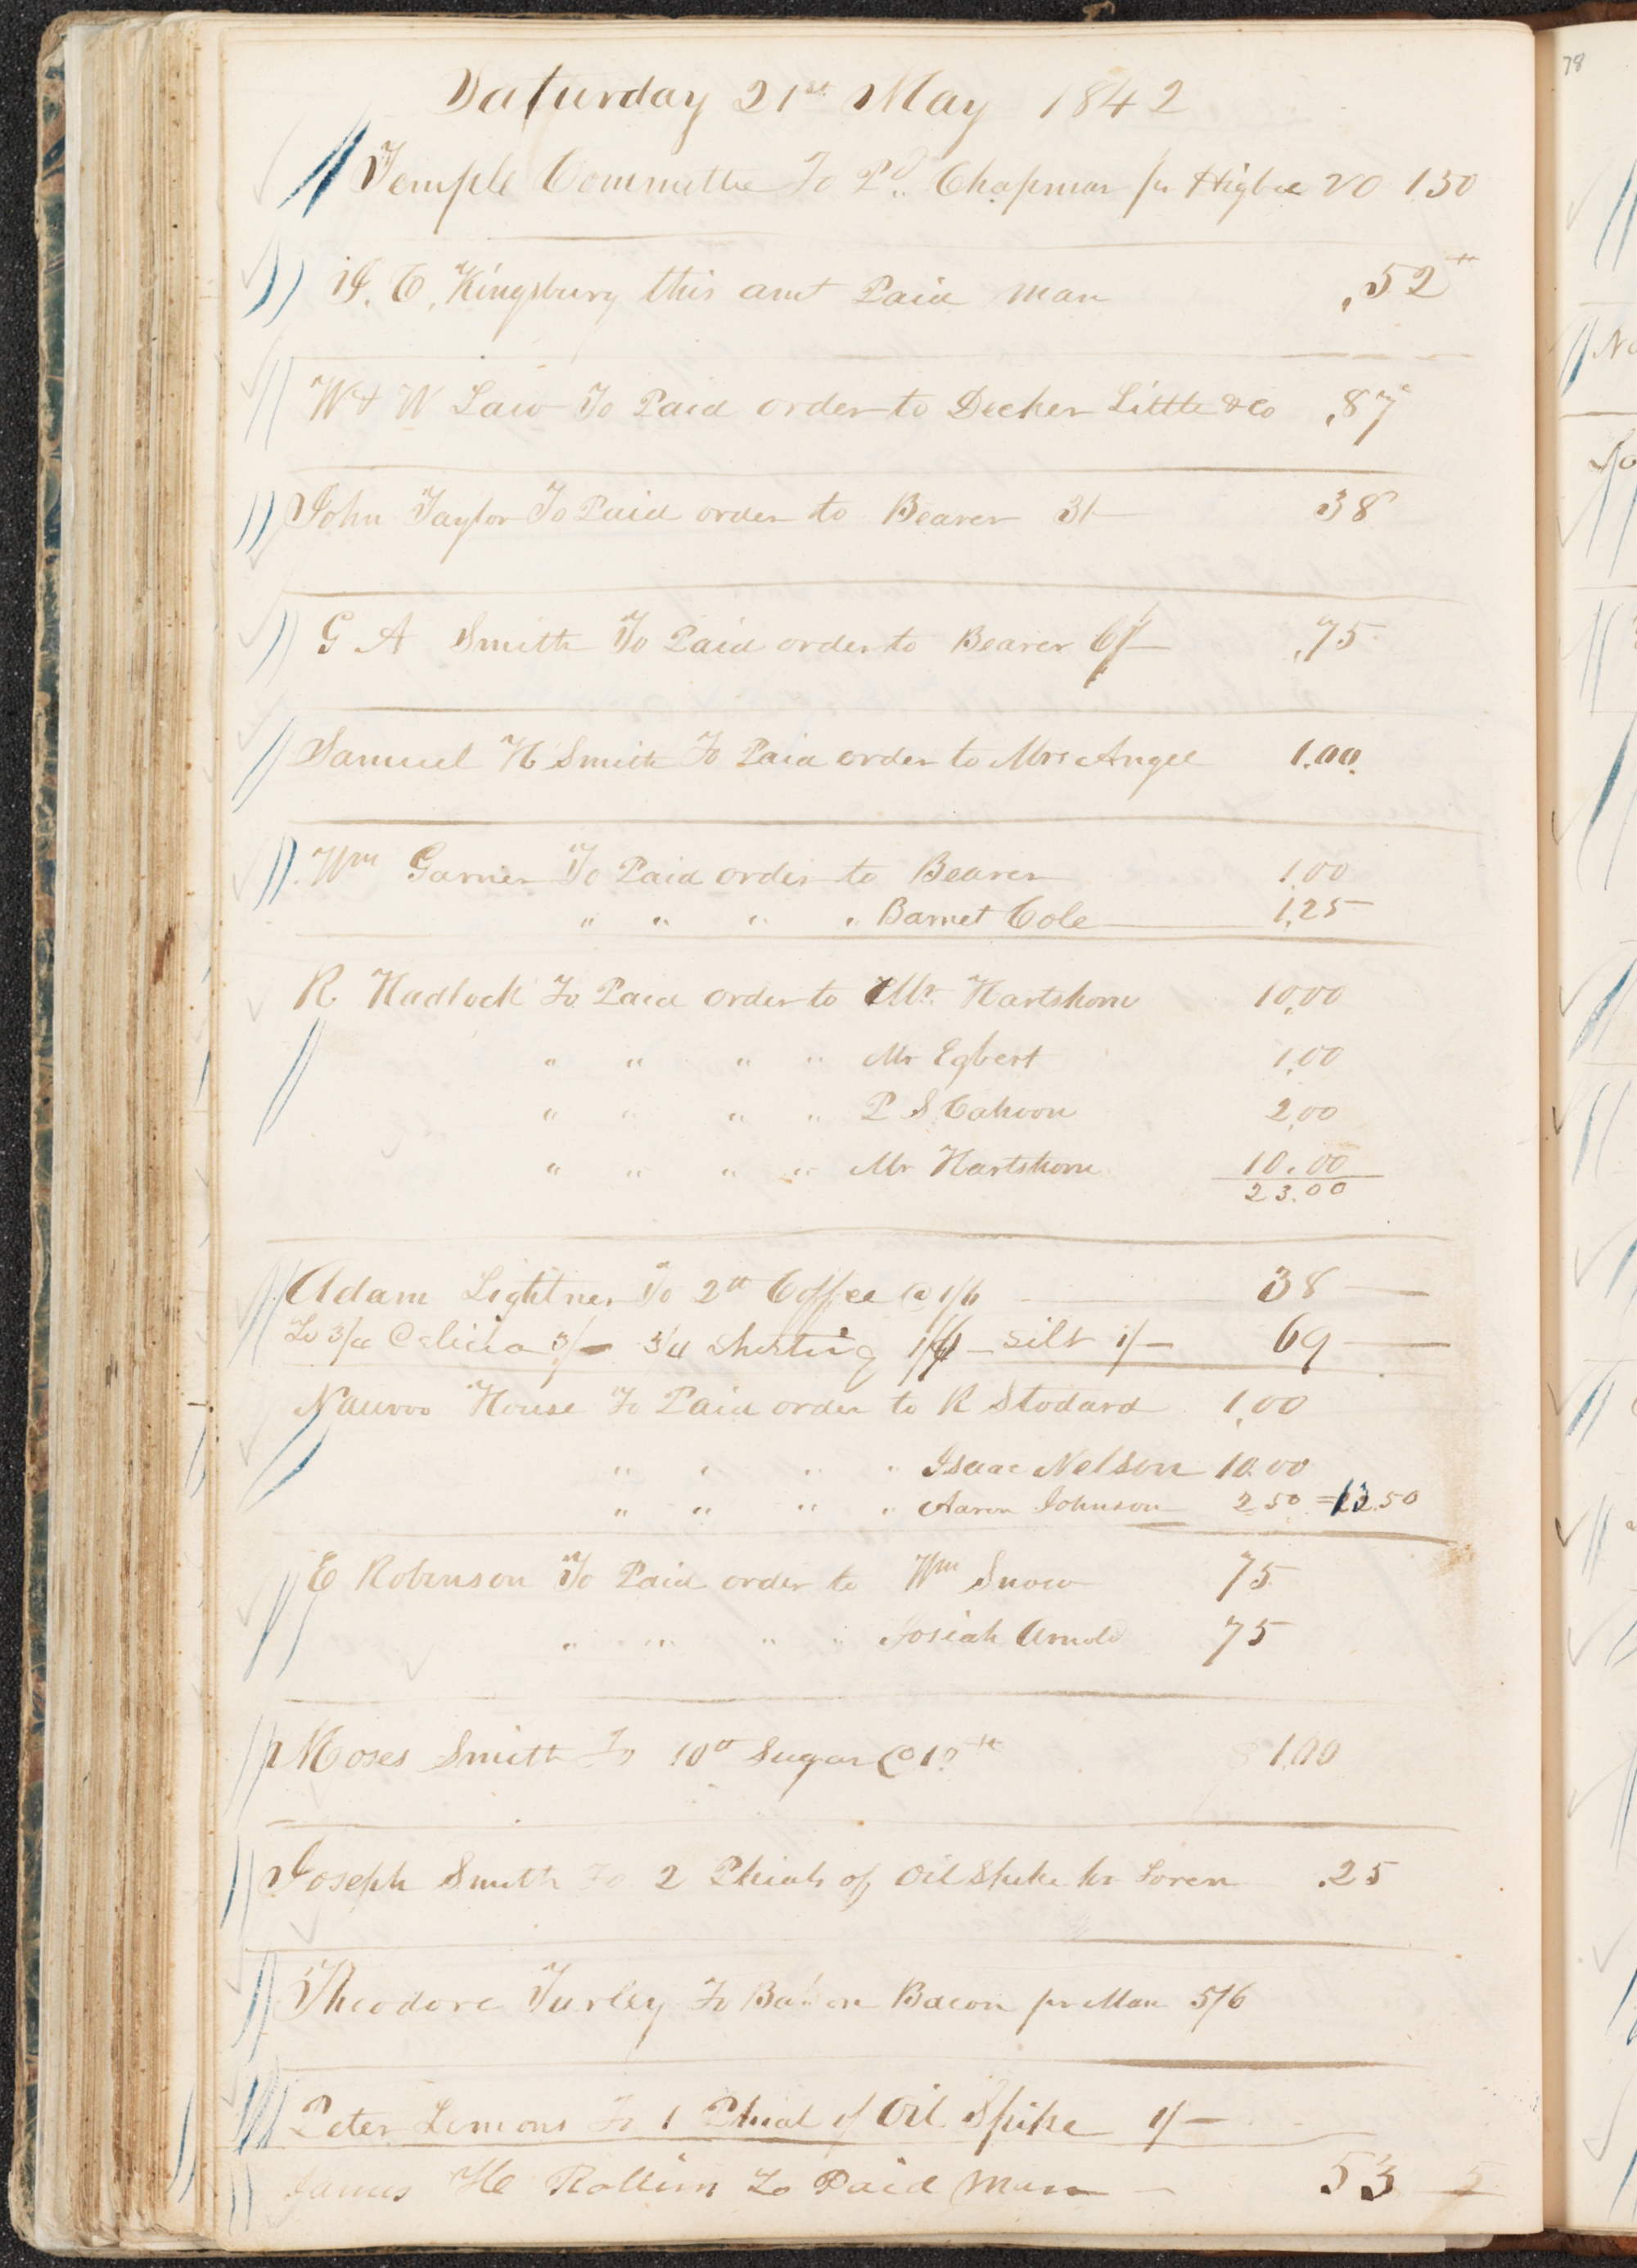 Saturday 21st May 1842
Temple Committee To Pd. Chapman for Higbee 20 1.50
J. C. Kingsbury this amt Paid man ,52
W & W Law To Paid order to Decker Little & Co ,87
John Taylor To Paid order to Bearer 3/— 38
G A Smith To Paid order to Bearer 6/— ,75
Samuel H Smith To Paid order to Mrs Angel 1.00
Wm Garner To Paid order to Bearer 1.00
" " " " Barnet Cole 1.25
R. Hadlock To Paid order to Mr. Hartshorn 10.00
" " " " Mr Egbert 1.00
" " " " P S Cahoon 2.00
" " " " Mr Hartshorn 10.00
23.00
Adam Lightner To 2tt Coffee @ 1/6 38
To 3/4 Calico 3/— 3/4 shirting 1/6 — silk 1/— 69
Nauvoo House To Paid order to R Stodard 1.00
" " " " Isaac Nelson 10.00
" " " " Aaron Johnson 2 50 = 13.50
E Robinson To Paid order to Wm Snow 75
" " " " Josiah Arnold 75
Moses Smith To 10tt Sugar @ 10 1.00
Joseph Smith To 2 Phials of Oil Spike for Loren .25
Theodore Turley To Bacon Bacon for Man 5/6
Peter Lemons To 1 Phial of Oil Spike 1/—
James H Rollins To Paid Man — 53
78